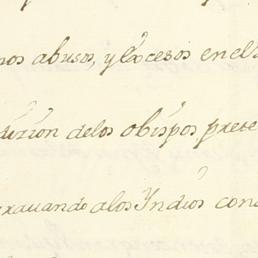 nos abusos, y excesos en el
dizion delos obispos prete
grauando alos Yndios con